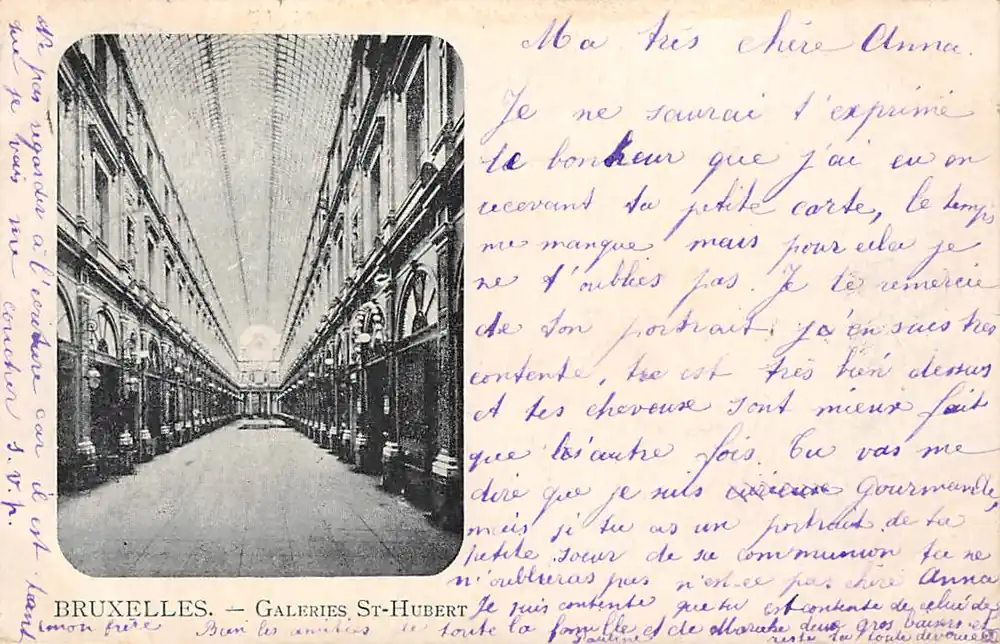 Ma très chère Anna.
Je ne saurai t'exprimé
le bonheur que j'ai eu en
recevant ta petite carte, le temps
me manque mais pour cela je
ne t'oublies pas. Je te remercie
de ton portrait. j'en suis très
contente, tu est très bien dessus
et tes cheveux sont mieux fait
que l'autre fois. Tu vas me
dire que je suis curieuse gourmande,
mais si tu as un portrait de ta
petite soeur de sa communion tu ne
n'oublieras pas n'est-ce pas chère Anna
Je suis contente que tu est contente de celui de
mon frère Bien les amitiés de toute la famille et de Marche deux gros baisers et
Pauline reste ta toute dévouée
BRUXELLES. — GALERIES ST-HUBERT
Ne pas regarder à l'écriture car il est tard
me je vais me coucher s.v.p.